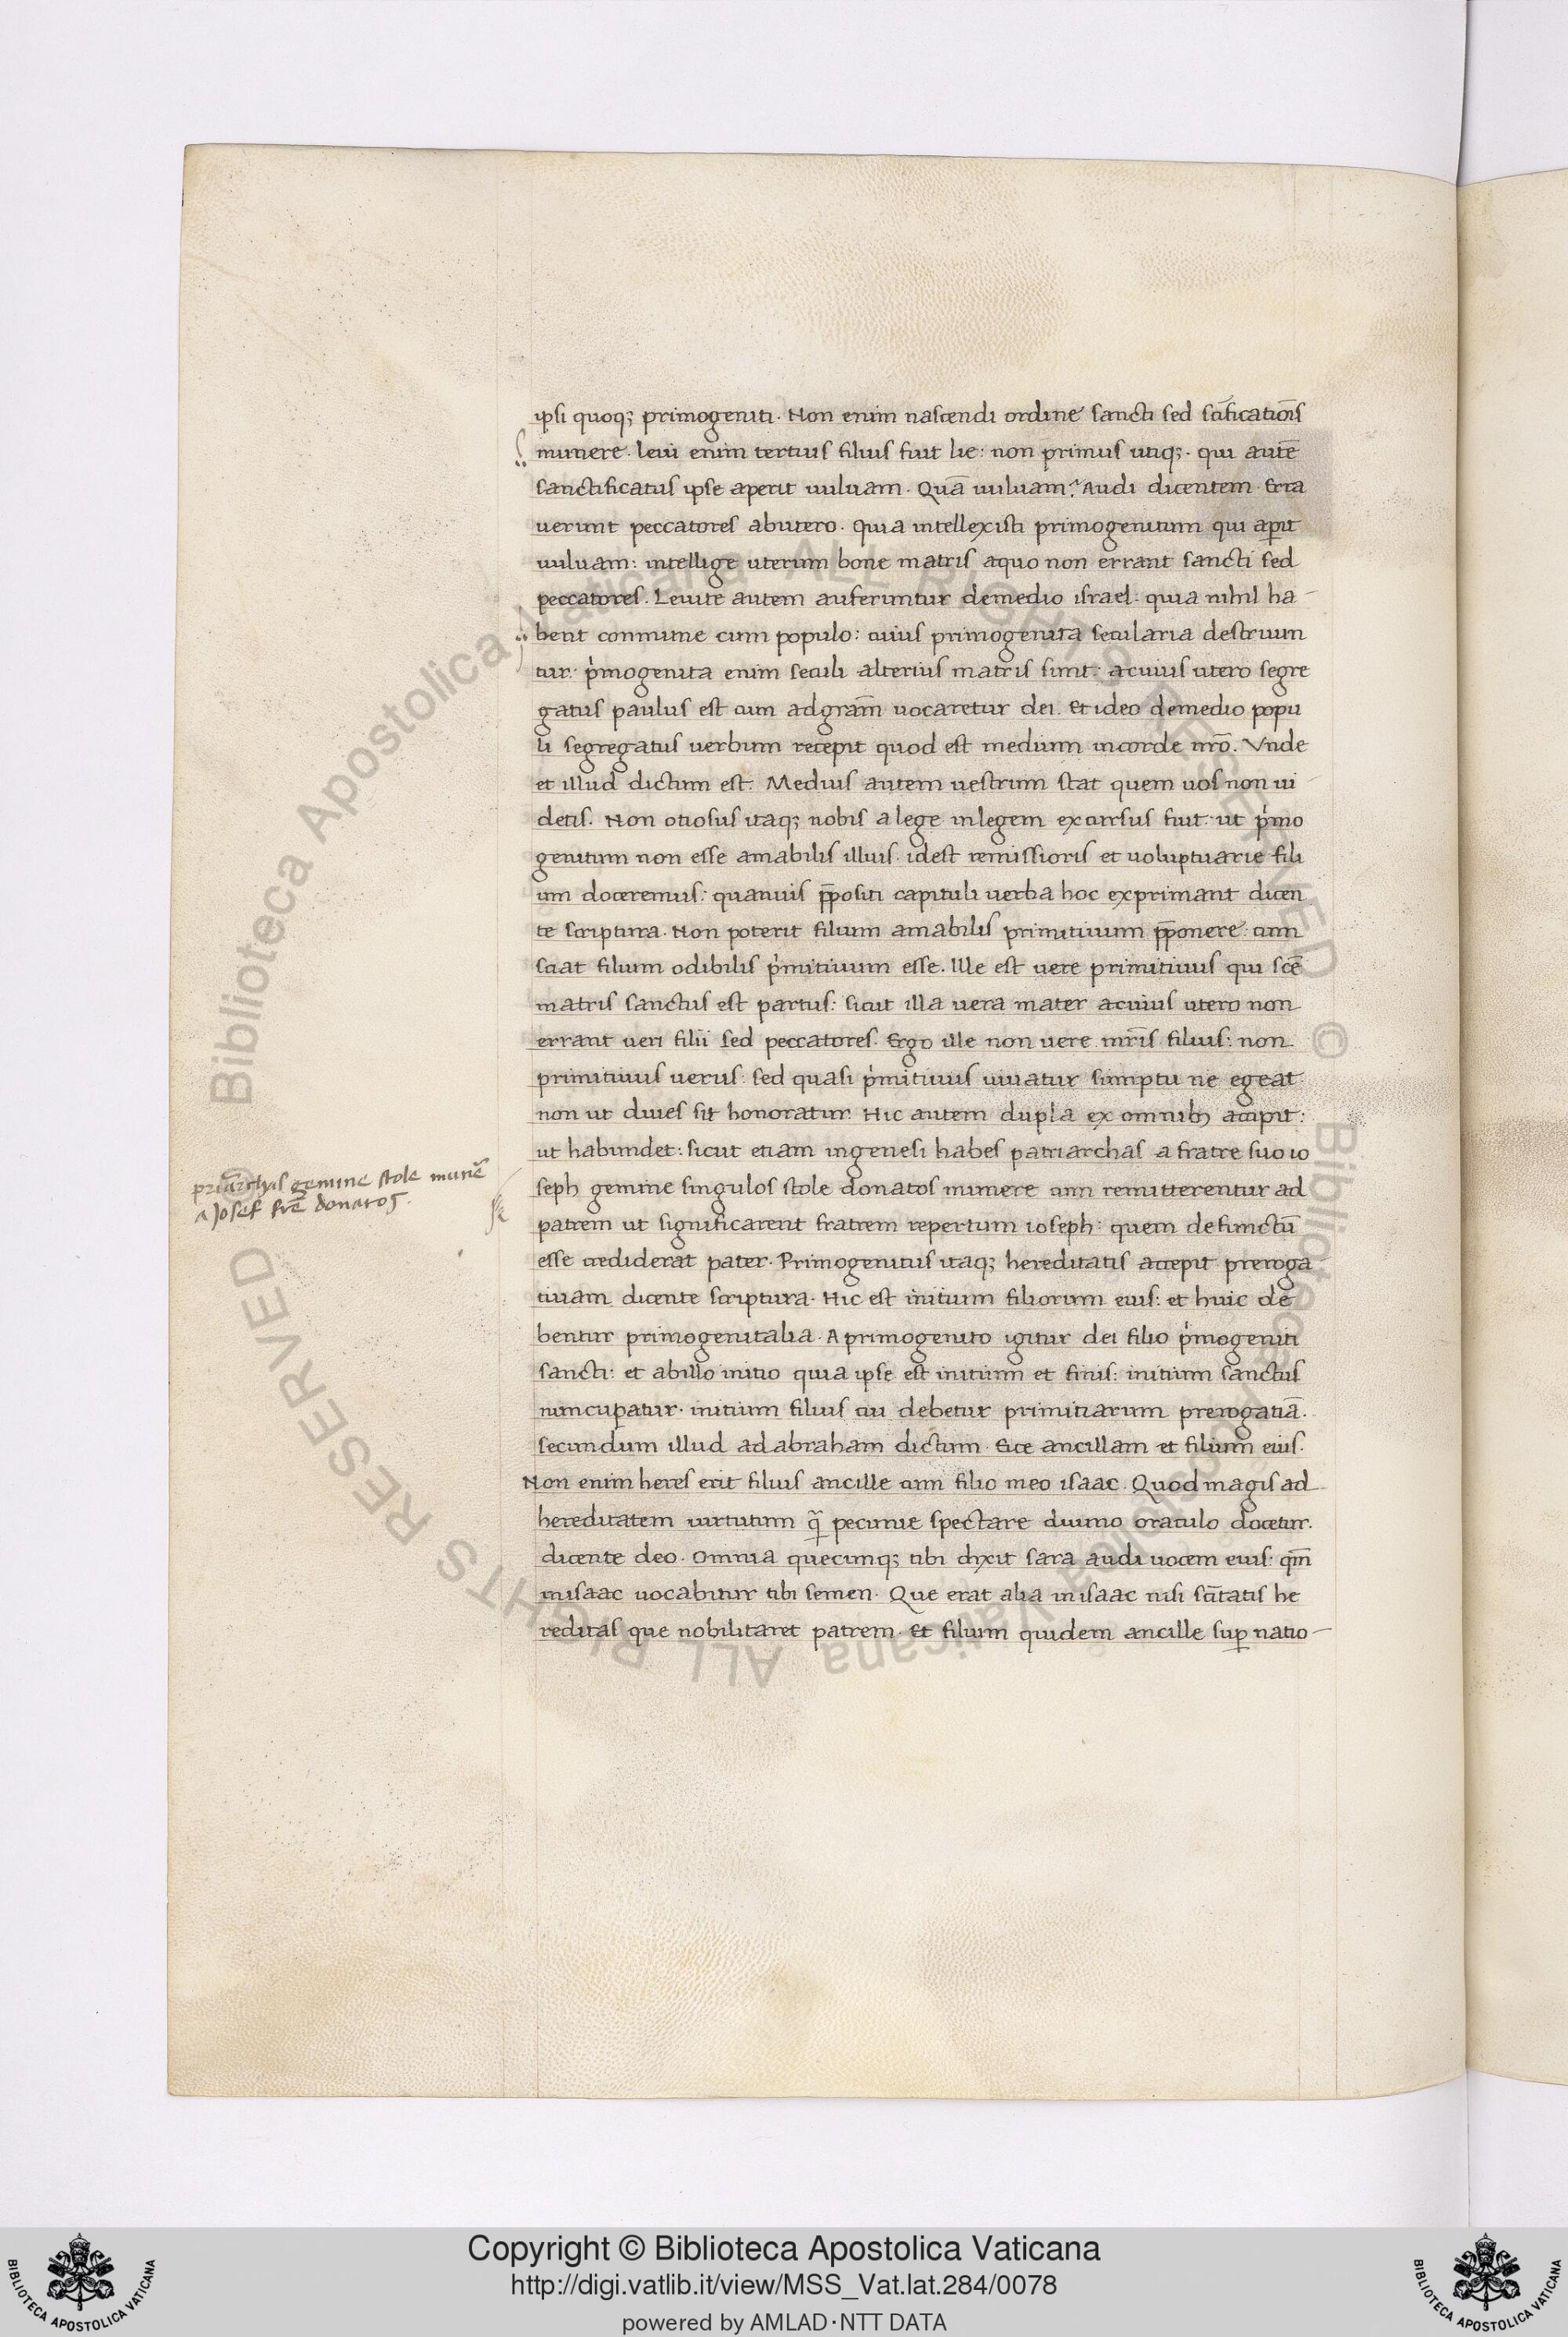 ipsi quoq; primogeniti. Non enim nascendi ordine sancti sed sc̄ificatiōis
munere. leui enim tertius filius fuit lie: non primus utiq;. qui autē
sanctificatus ipse aperit uuluam. Quā uuluam? Audi dicentem. Erra
uerunt peccatores abutero. Quia intellexisti primogenitum qui ap̲it
uuluam: intellige uterum bone matris aquo non errant sancti sed
peccatores. Leuite autem auferuntur demedio israel: quia nihil ha-
bent commune cum populo: cuius primogenita secularia destruun
tur: p̍mogenita enim seculi alterius matris sunt: acuius utero segre
gatus paulus est cum adgram̄ uocaretur dei. Et ideo demedio popu
li segregatus uerbum recepit quod est medium incorde nrō. Vnde
et illud dictum est. Medius autem uestrum stat quem uos non ui
detis. Non otiosus itaq; nobis a lege inlegem excursus fuit: ut p̍mo
genitum non esse amabilis illius. idest remissioris et uoluptuarie fili
um doceremus: quamuis p̄positi capituli uerba hoc exprimant dicen
te scriptura. Non poterit filium amabilis primitiuum p̄ponere: cum
sciat filium odibilis p̍mitiuum esse. Ille est uere primitiuus qui scē
matris sanctus est partus: sicut illa uera mater acuius utero non
errant ueri filii sed peccatores. Ergo ille non uere mr̄is filius: non
primitiuus uerus: sed quasi p̍mitiuus iuuatur sumptu ne egeat.
non ut diues sit honoratur. Hic autem dupla ex omnib; accipit:
ut habundet: sicut etiam ingenesi habes patriarchas a fratre suo io
seph gemine singulos stole donatos munere cum remitterentur ad
patrem ut significarent fratrem repertum ioseph: quem defunctū
esse crediderat pater. Primogenitus itaq; hereditatis accepit preroga
tiuam dicente scriptura. Hic est initium filiorum eius: et huic de
bentur primogenitalia. A primogenito igitur dei filio p̍mogeniti
sancti: et abillo initio quia ipse est initium et finis: initium sanctus
nuncupatur. initium filius cui debetur primitiarum prerogatiā.
secundum illud ad abraham dictum. Eice ancillam et filium eius.
Non enim heres erit filius ancille cum filio meo isaac. Quod magis ad
hereditatem uirtutum q̲̄ pecunie spectare diuino oraculo docetur.
dicente deo. Omnia quecunq; tibi dixit sara audi uocem eius: qm̄
inisaac uocabitur tibi semen. Que erat alia inisaac nisi sc̄itatis he
reditas que nobilitaret patrem. Et filium quidem ancille sup̲ natio-
priārchas gemine stole munē
a Josef frē donatos.
Biblioteca Apostolica Vaticana ALL RIGHTS RESERVED © Biblioteca Apostolica Vaticana ALL RIGHTS RESERVED ©
Copyright © Biblioteca Apostolica Vaticana
http://digi.vatlib.it/view/MSS_Vat.lat.284/0078
powered by AMLAD·NTT DATA
BIBLIOTECA APOSTOLICA VATICANA
BIBLIOTECA APOSTOLICA VATICANA